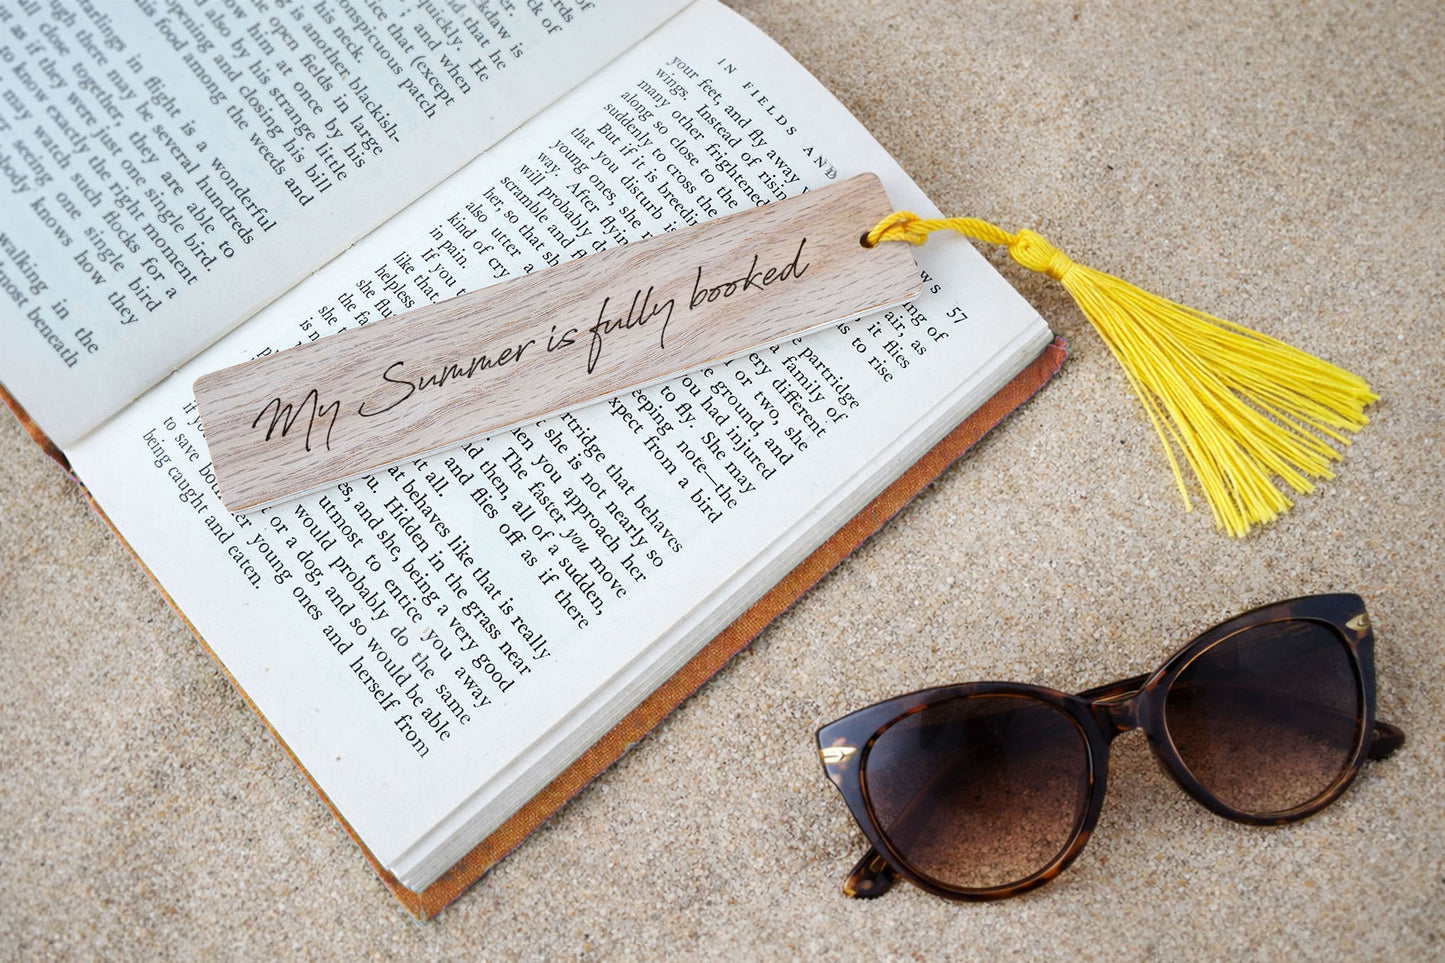 ck of
ckdaw is
and that he
quickly. He
; and when
ice that (except
onspicuous patch
his neck.
is another, blackish-
e open fields in large
ow him at once by his
d also by his strange little
pening and closing his bill
is food among the weeds and
tarlings in flight is a wonderful
ugh there may be several hundreds
all close together, they are able to
as if they were just one single bird.
to know exactly the right moment
may watch such flocks for a
r seeing one single bird
body knows how they
walking in the
lmost beneath
IN FIELDS AND WS 57
your feet, and fly away w ing of
wings. Instead of risin air, as
many other frightened it flies
along so close to the s to rise
suddenly to cross the partridge
But if it is breedin a family of
that you disturb i ery different
young ones, she or two, she
way. After flyin e ground, and
will probably d ou had injured
scramble and fl to fly. She may
her, so that sh eeping note—the
also utter a xpect from a bird
kind of cry
in pain.
If you t rtridge that behaves
like that, t she is not nearly so
helpless en you approach her
she flu The faster you move
the fa nd then, all of a sudden,
is n and flies off as if there
it all.
at behaves like that is really
u. Hidden in the grass near
es, and she, being a very good
utmost to entice you away
would probably do the same
if yo or a dog, and so would be able
to save both er young ones and herself from
being caught and eaten.
My Summer is fully booked